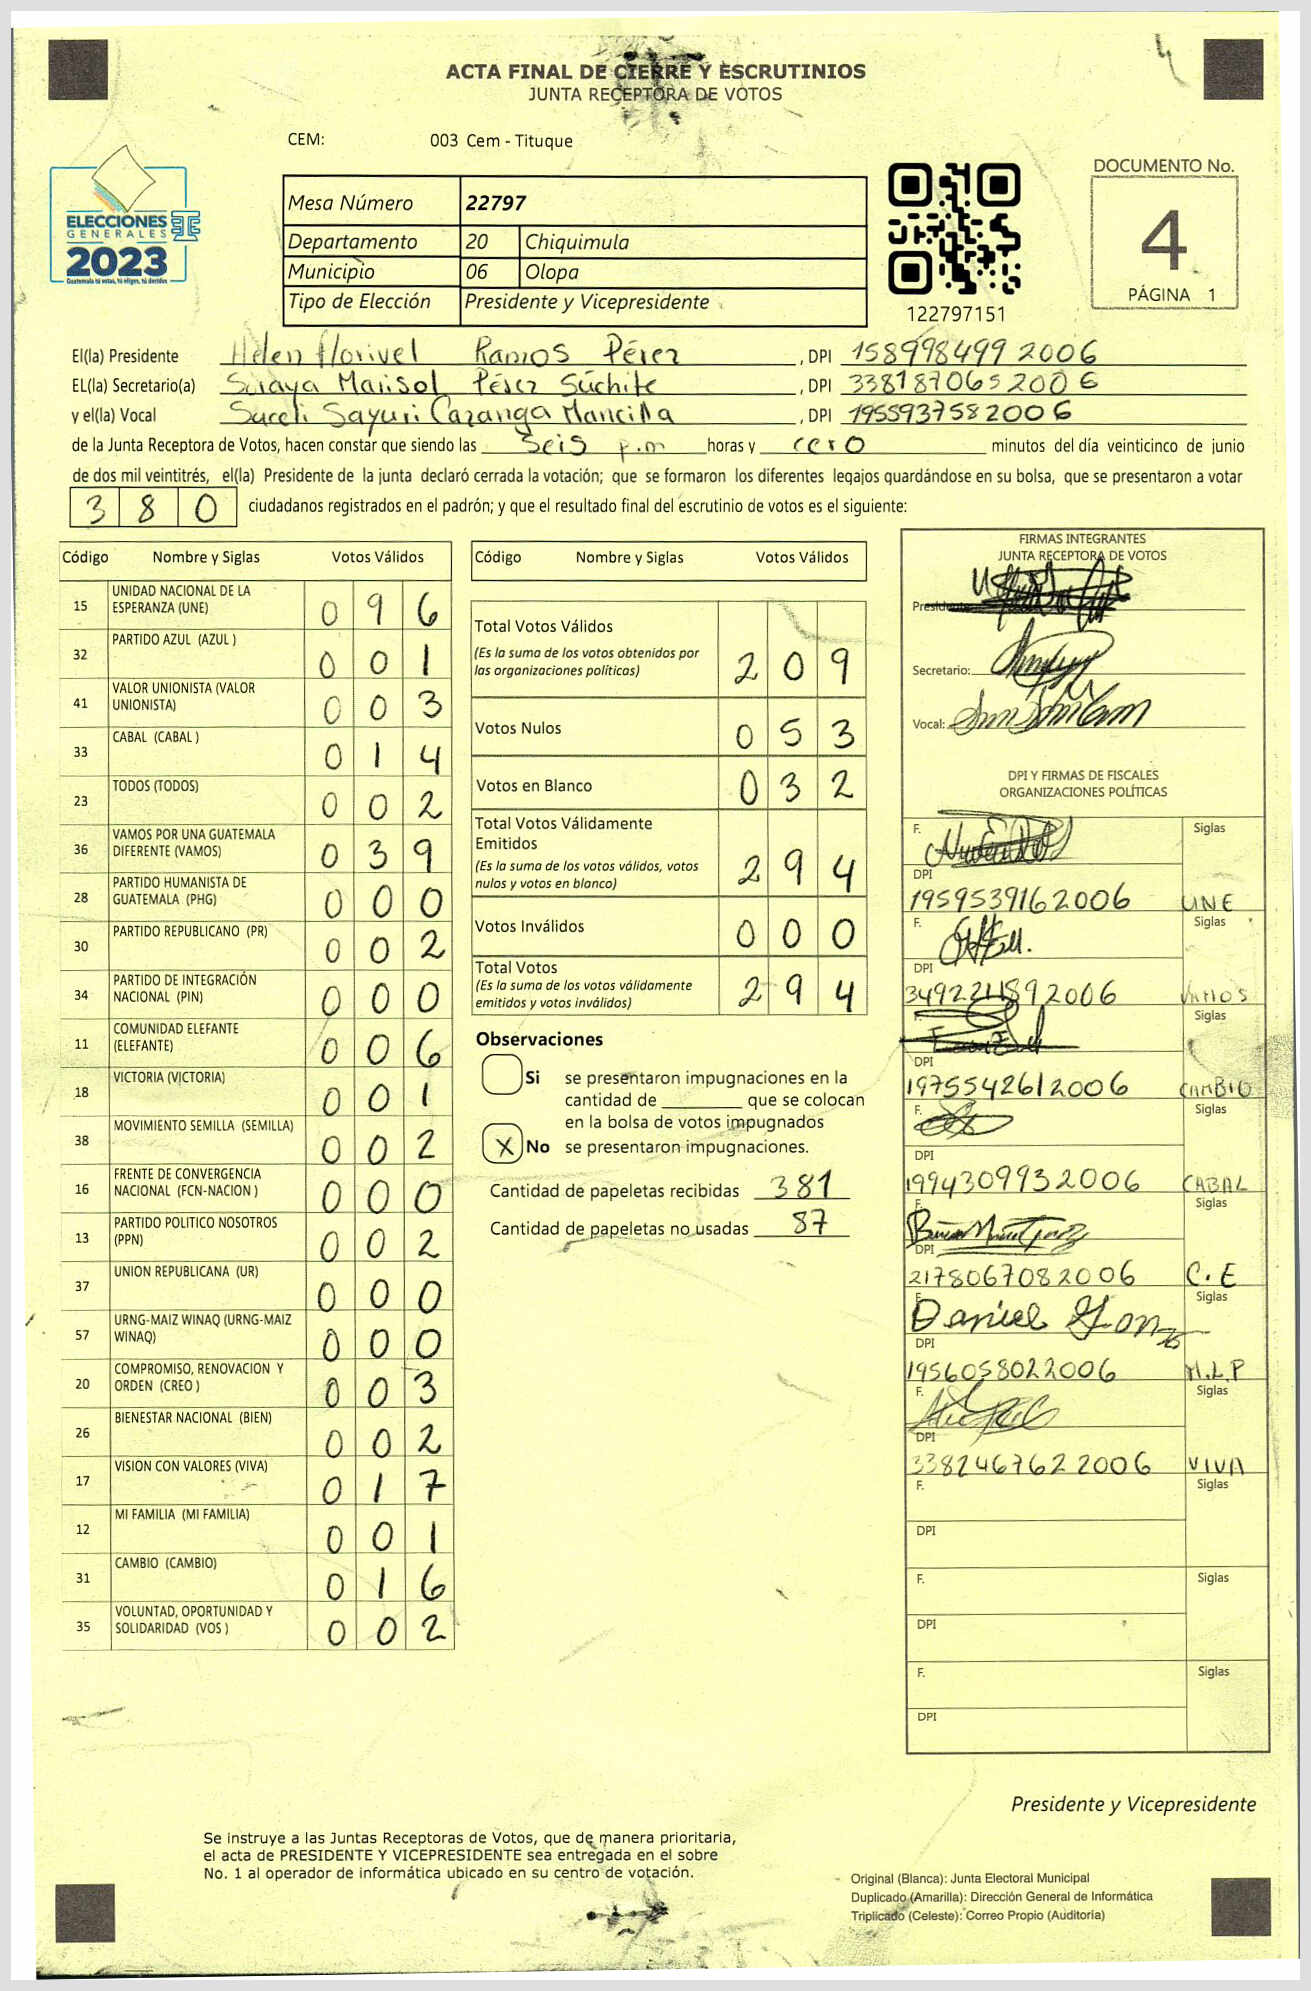 ACTA FINAL DE CIERRE Y ESCRUTINIOS
JUNTA RECEPTORA DE VOTOS
CEM: 003 Cem - Tituque
ELECCIONES
GENERALES
2023
Guatemala tú votas, tú eliges, tú decides
Mesa Número 22797
Departamento 20 Chiquimula
Municipio 06 Olopa
Tipo de Elección Presidente y Vicepresidente
122797151
DOCUMENTO No.
4
PÁGINA 1
El(la) Presidente Helen Florivel Ramos Pérez , DPI 158998499 2006
EL(la) Secretario(a) Soraya Marisol Pérez Súchite , DPI 338187065 2006
y el(la) Vocal Suceli Sayuri Cazanga Mancilla , DPI 195593758 2006
de la Junta Receptora de Votos, hacen constar que siendo las seis p.m horas y cero minutos del día veinticinco de junio
de dos mil veintitrés, el(la) Presidente de la junta declaró cerrada la votación; que se formaron los diferentes legajos guardándose en su bolsa, que se presentaron a votar
3 8 0 ciudadanos registrados en el padrón; y que el resultado final del escrutinio de votos es el siguiente:
Código Nombre y Siglas Votos Válidos
15 UNIDAD NACIONAL DE LA ESPERANZA (UNE) 0 9 6
32 PARTIDO AZUL (AZUL ) 0 0 1
41 VALOR UNIONISTA (VALOR UNIONISTA) 0 0 3
33 CABAL (CABAL ) 0 1 4
23 TODOS (TODOS) 0 0 2
36 VAMOS POR UNA GUATEMALA DIFERENTE (VAMOS) 0 3 9
28 PARTIDO HUMANISTA DE GUATEMALA (PHG) 0 0 0
30 PARTIDO REPUBLICANO (PR) 0 0 2
34 PARTIDO DE INTEGRACIÓN NACIONAL (PIN) 0 0 0
11 COMUNIDAD ELEFANTE (ELEFANTE) 0 0 6
18 VICTORIA (VICTORIA) 0 0 1
38 MOVIMIENTO SEMILLA (SEMILLA) 0 0 2
16 FRENTE DE CONVERGENCIA NACIONAL (FCN-NACION ) 0 0 0
13 PARTIDO POLITICO NOSOTROS (PPN) 0 0 2
37 UNION REPUBLICANA (UR) 0 0 0
57 URNG-MAIZ WINAQ (URNG-MAIZ WINAQ) 0 0 0
20 COMPROMISO, RENOVACION Y ORDEN (CREO ) 0 0 3
26 BIENESTAR NACIONAL (BIEN) 0 0 2
17 VISION CON VALORES (VIVA) 0 1 7
12 MI FAMILIA (MI FAMILIA) 0 0 1
31 CAMBIO (CAMBIO) 0 1 6
35 VOLUNTAD, OPORTUNIDAD Y SOLIDARIDAD (VOS ) 0 0 2
Código Nombre y Siglas Votos Válidos
Total Votos Válidos
(Es la suma de los votos obtenidos por
las organizaciones políticas) 2 0 9
Votos Nulos 0 5 3
Votos en Blanco 0 3 2
Total Votos Válidamente
Emitidos
(Es la suma de los votos válidos, votos
nulos y votos en blanco) 2 9 4
Votos Inválidos 0 0 0
Total Votos
(Es la suma de los votos válidamente
emitidos y votos inválidos) 2 9 4
Observaciones
Si se presentaron impugnaciones en la
cantidad de ________ que se colocan
en la bolsa de votos impugnados
X No se presentaron impugnaciones.
Cantidad de papeletas recibidas 381
Cantidad de papeletas no usadas 87
FIRMAS INTEGRANTES
JUNTA RECEPTORA DE VOTOS
Presidente:
Secretario:
Vocal:
DPI Y FIRMAS DE FISCALES
ORGANIZACIONES POLÍTICAS
F. Siglas
DPI
195953916 2006 UNE
F. Siglas
DPI
349221189 2006 VAMOS
F. Siglas
DPI
197554261 2006 CAMBIO
F. Siglas
DPI
199430993 2006 CABAL
F. Siglas
DPI
217806708 2006 C.E
F. Daniel Siglas
DPI
195605802 2006 M.L.P
F. Siglas
DPI
338246762 2006 VIVA
F. Siglas
DPI
F. Siglas
DPI
F. Siglas
DPI
Presidente y Vicepresidente
Se instruye a las Juntas Receptoras de Votos, que de manera prioritaria,
el acta de PRESIDENTE Y VICEPRESIDENTE sea entregada en el sobre
No. 1 al operador de informática ubicado en su centro de votación.
Original (Blanca): Junta Electoral Municipal
Duplicado (Amarilla): Dirección General de Informática
Triplicado (Celeste): Correo Propio (Auditoría)